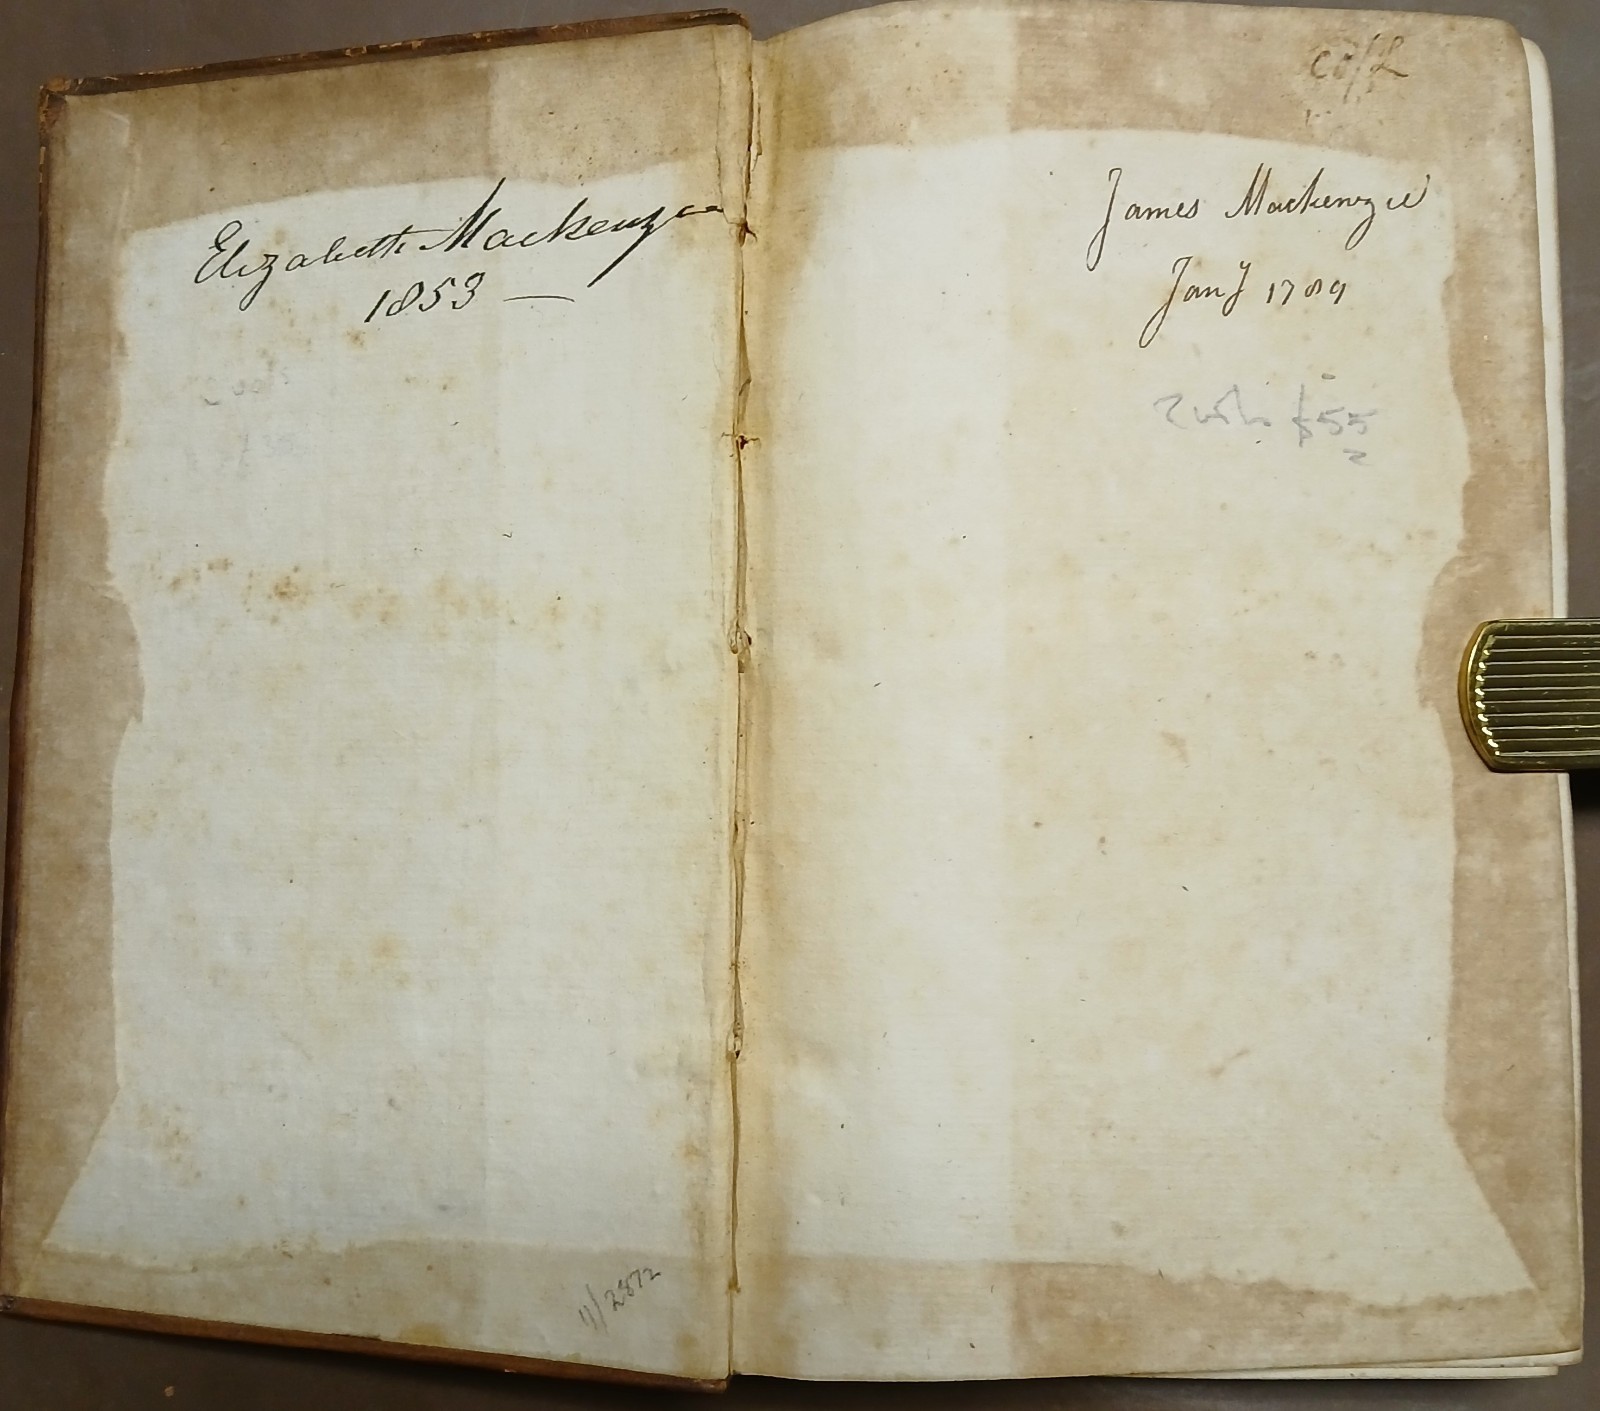 Elizabeth Mackenzie
1853 —
11/2872
James Mackenzie
Jany 1789
£55
2